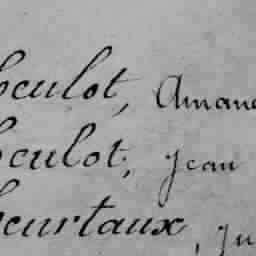 heulot, Amand
heulot, Jean
heurtaux, Ju